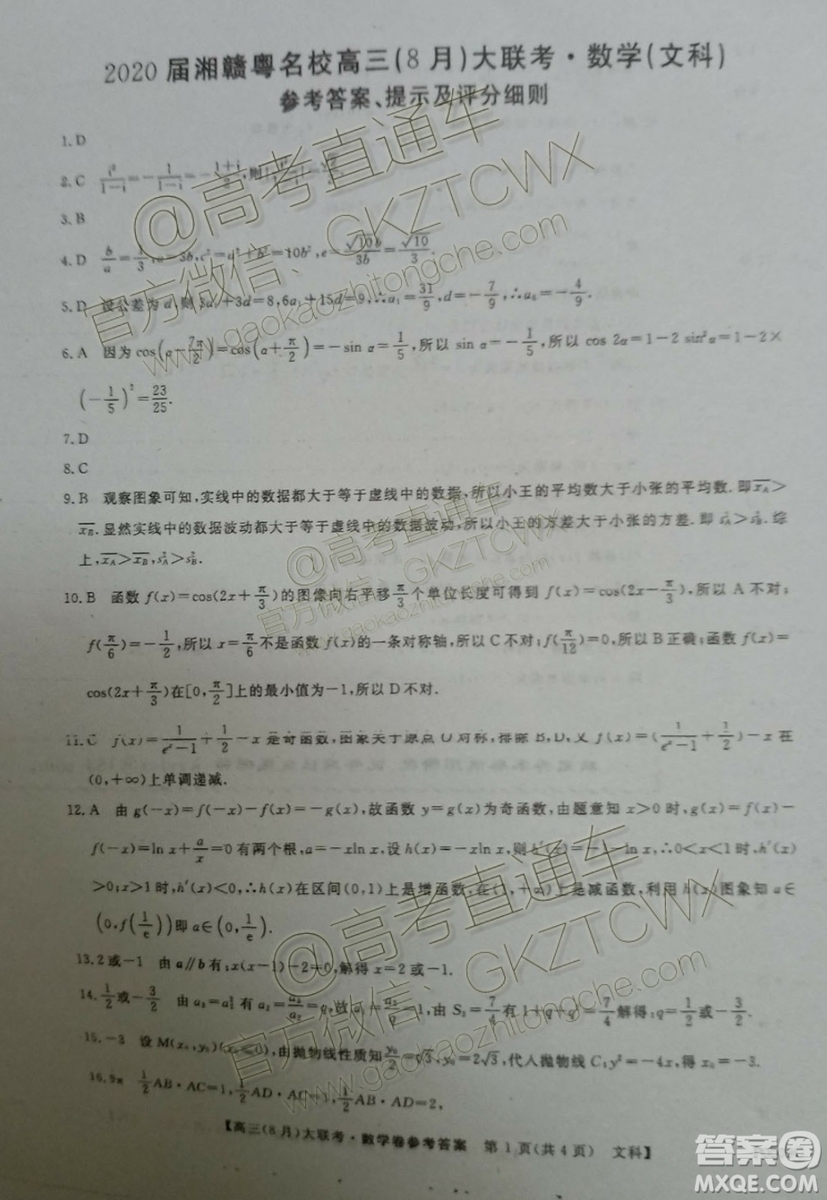 2020届湘赣粤名校高三(8月)大联考·数学(文科)
参考答案、提示及评分细则
1.D
2.C
3.B
4.D b/a=1/3,a=3b,c²=a²+b²=10b²,e=√10b/3b=√10/3.
5.D 设公差为d,则 +3d=8,6a₁+15d=9,∴a₁=31/9,d=-7/9,∴a₆=-4/9.
6.A 因为cos(α+7π/2)=cos(α-π/2)
=-sin α=1/5,所以 sin α=-1/5,所以 cos 2α=1-2 sin²α=1-2×
(-1/5)²=23/25.
7.D
8.C
9.B 观察图象可知,实线中的数据都大于等于虚线中的数据,所以小王的平均数大于小张的平均数.即x̄_A>
x̄_B.显然实线中的数据波动都大于等于虚线中的数据波动,所以小王的方差大于小张的方差.即 s²_A>s²_B.综
上,x̄_A>x̄_B,s²_A>s²_B.
10.B 函数 f(x)=cos(2x+π/3)的图像向右平移π/3个单位长度可得到 f(x)=cos(2x-π/3),所以 A 不对;
f(π/6)=-1/2,所以 x=π/6不是函数 f(x)的一条对称轴,所以 C 不对;f(π/12)=0,所以 B 正确;函数
cos(2x+π/3)在[0,π/2]上的最小值为-1,所以 D 不对.
11.C f(x)=1/(eˣ-1)+1/2-x 是奇函数,图象关于原点 O 对称,排除 B,D,又 f(x)=(1/(eˣ-1)+1/2)-x 在
(0,+∞)上单调递减.
12.A 由 g(-x)=f(-x)-f(x)=-g(x),故函数 y=g(x)为奇函数,由题意知 x>0 时,g(x)=f(x)-
f(-x)=ln x+a/x=0 有两个根,a=-xln x,设 h(x)=-xln x,则 h′(x)=-1-ln x,∴0<x<1 时,h′(x)
>0;x>1 时,h′(x)<0,∴h(x)在区间(0,1)上是增函数,在(1,+∞)上是减函数,利用 h(x)图象知 a∈
(0,f(1/e))即 a∈(0,1/e).
13.2或-1 由 a∥b 有:x(x-1)-2=0,解得 x=2 或-1.
14.1/2或-3/2 由 S₃=7/4有 1+q+q²=7/4解得:q=1/2或-3/2.
15.-3 设 M(x₀,y₀)(x₀≠0),由抛物线性质知y₀/2=√3,y₀=2√3,代入抛物线 C:y²=-4x,得 x₀=-3.
16.9π 1/2AB·AC=1,1/2AD·AC= ,1/2AB·AD=2,
【高三(8月)大联考·数学卷参考答案 第1页(共4页) 文科】
@高考直通车
官方微信:GKZTCWX
www.gaokaozhitongche.com
@高考直通车
官方微信:GKZTCWX
@高考直通车
官方微信:GKZTCWX
www.gaokaozhitongche.com
答案圈
MXQE.COM